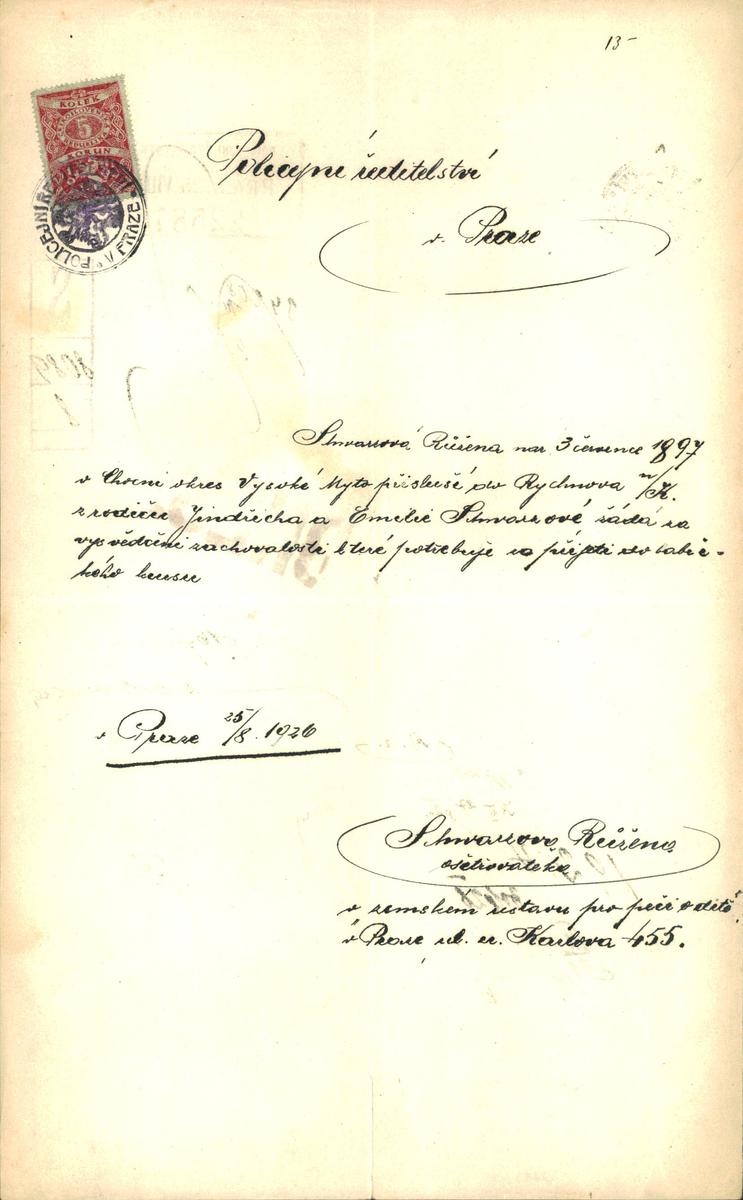 13-
KOLEK
5
KORUN
POLICEJNÍ ŘEDITELSTVÍ V PRAZE
Policejní ředitelství
v. Praze
Schwarzová Růžena nar 3 července 1897
v Chocni okres Vysoké Myto příslušé do Rychnova n/K.
z rodičů Jindřicha a Emilie Schwarzové žádá za
vysvědčení zachovalosti které potřebuje za přijetí do
kého kursu
v Praze 25/8. 1926
Schwarzova Růžena
ošetřovatelka
v zemském ustavu pro péči o dítě
v Praze ul. Karlova 455.